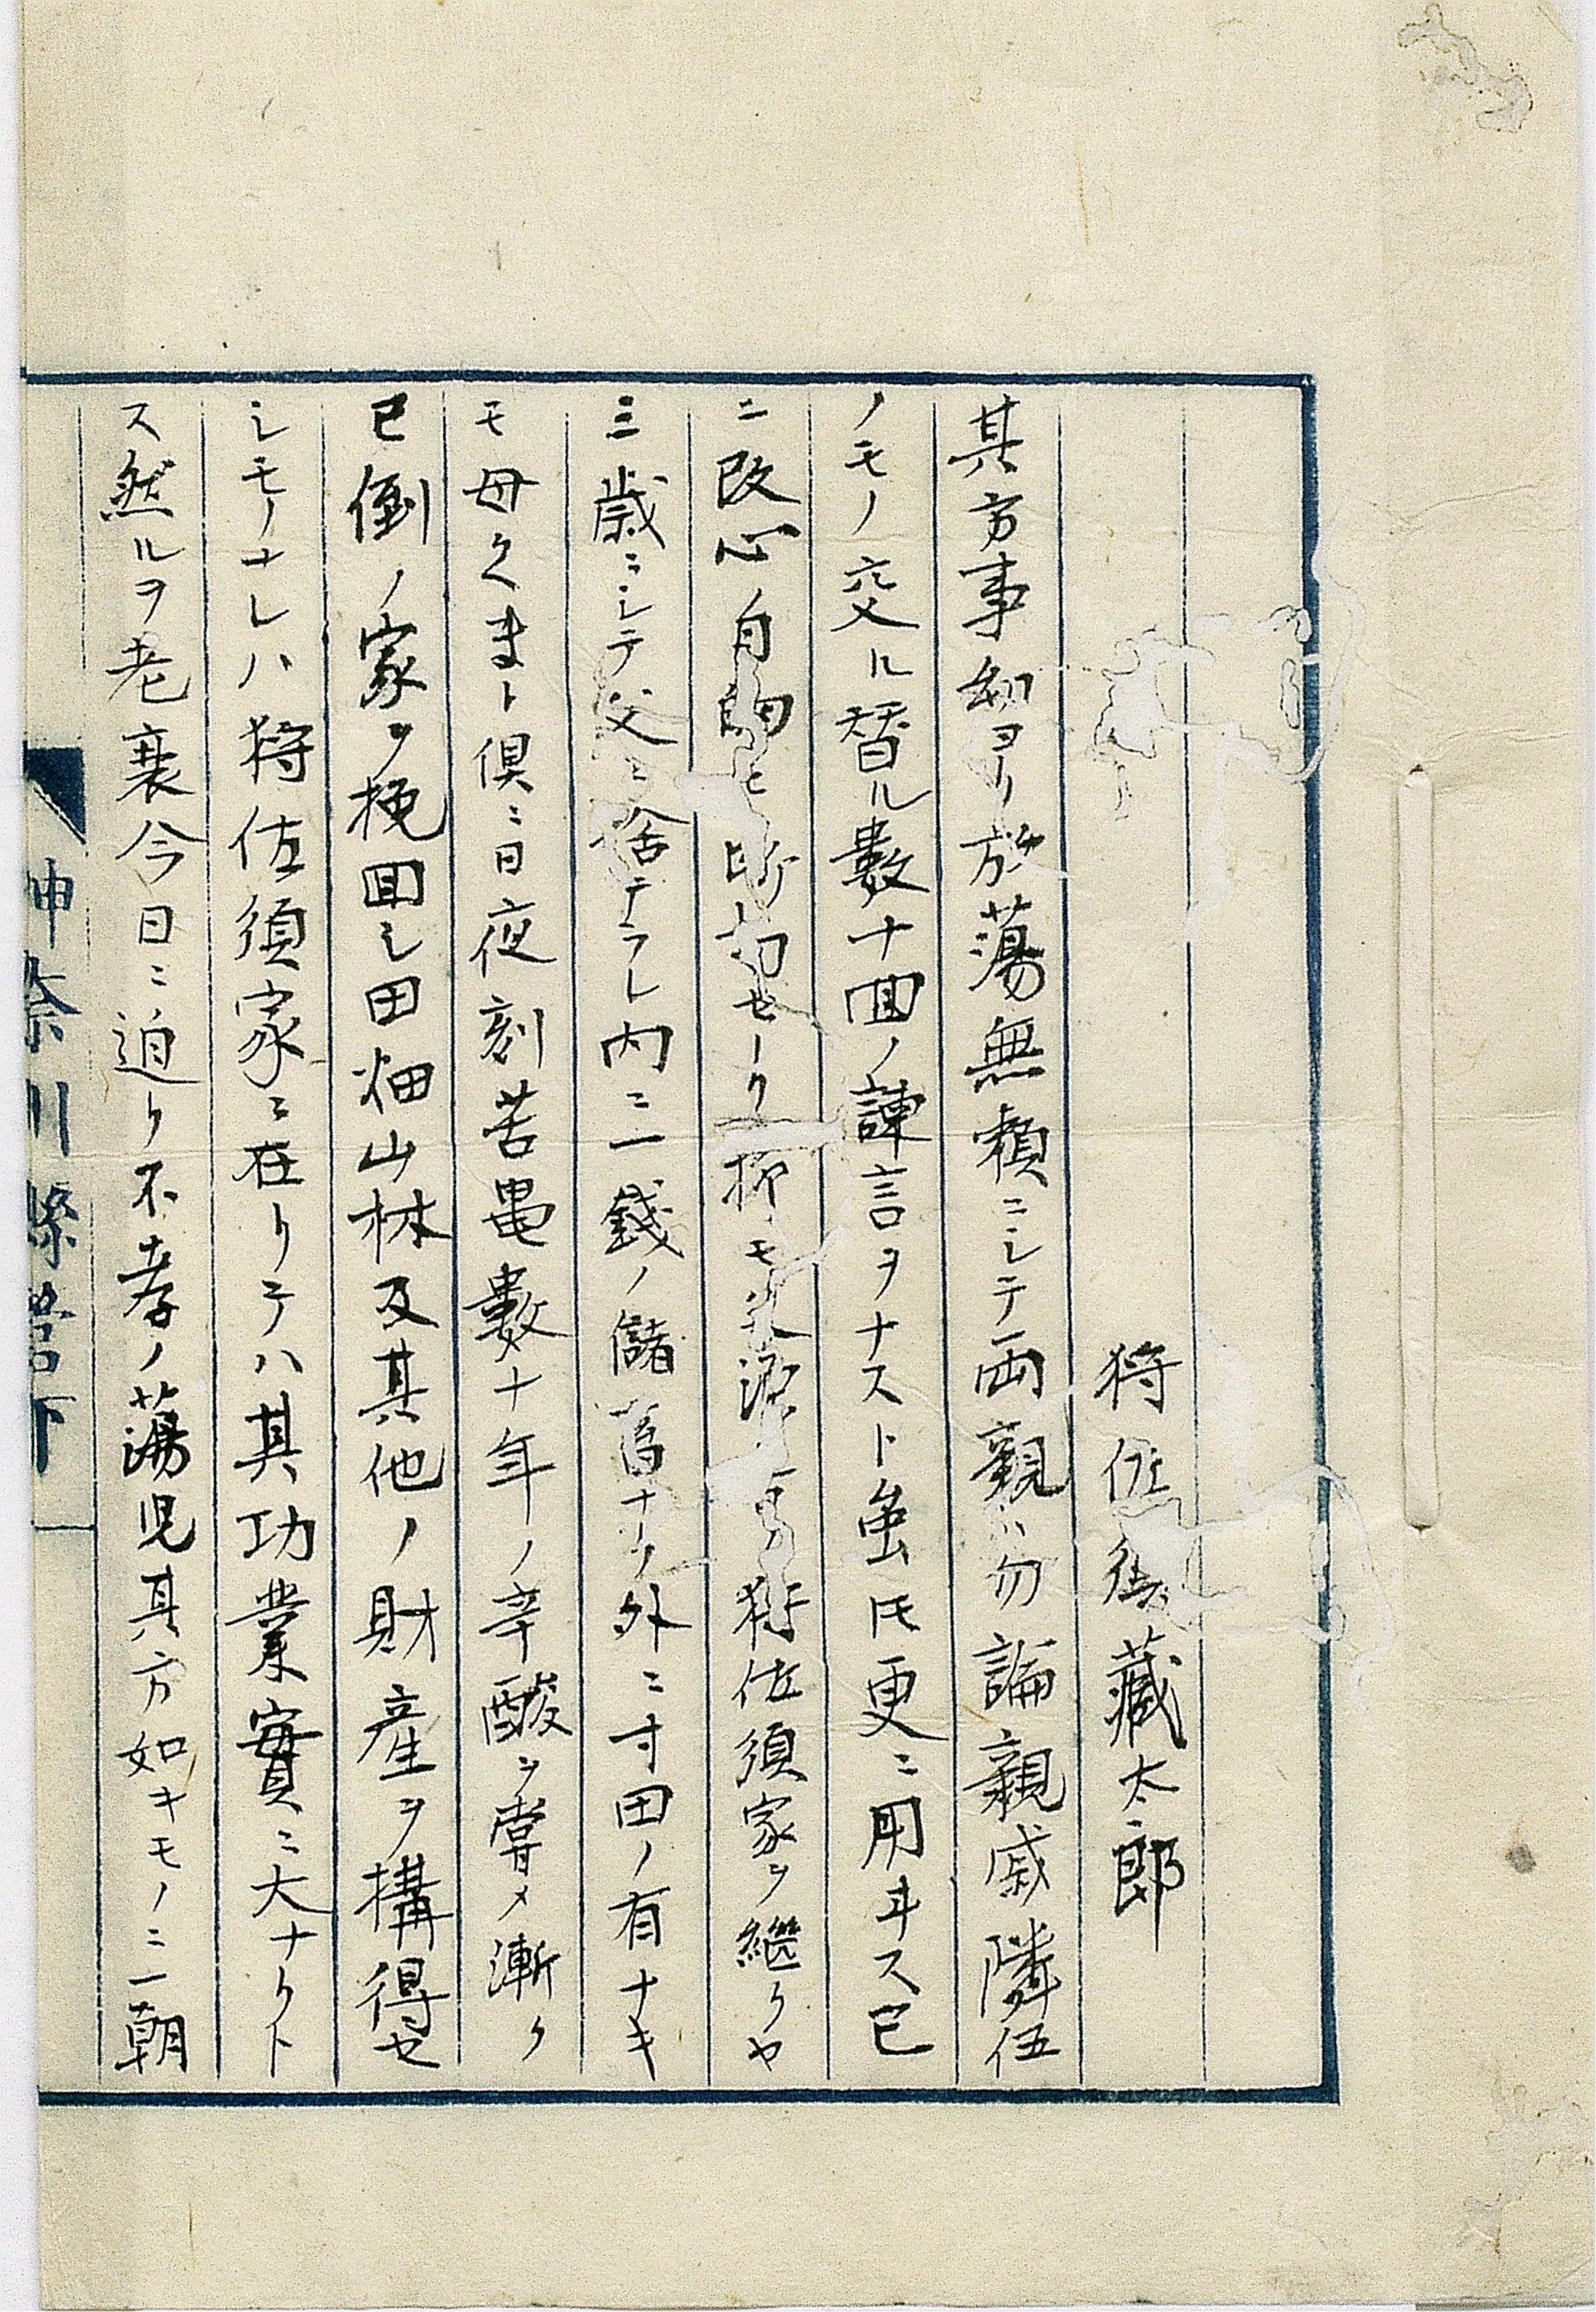 狩佐須藏太郎
其方事幼ヨリ放蕩無頼ニシテ両親ハ勿論親戚隣伍
ノモノ交ル替ル數十回ノ諌言ヲナスト虽氏更ニ用ヰス已
ニ改心ノ目的モ断切セリ抑モ父源 狩佐須家ヲ継クヤ
三歳ニシテ父ニ舎テラレ内ニ一錢ノ儲蓄ナク外ニ寸田ノ有ナキ
モ母くまト倶ニ日夜刻苦黽數十年ノ辛酸ヲ甞メ漸ク
已倒ノ家ヲ挽回シ田畑山林及其他ノ財産ヲ構得セ
シモノナレハ狩佐須家ニ在リテハ其功業實ニ大ナリト
ス然ルヲ老衰今日ニ迫リ不孝ノ蕩児其方如キモノニ一朝
神奈川縣管下